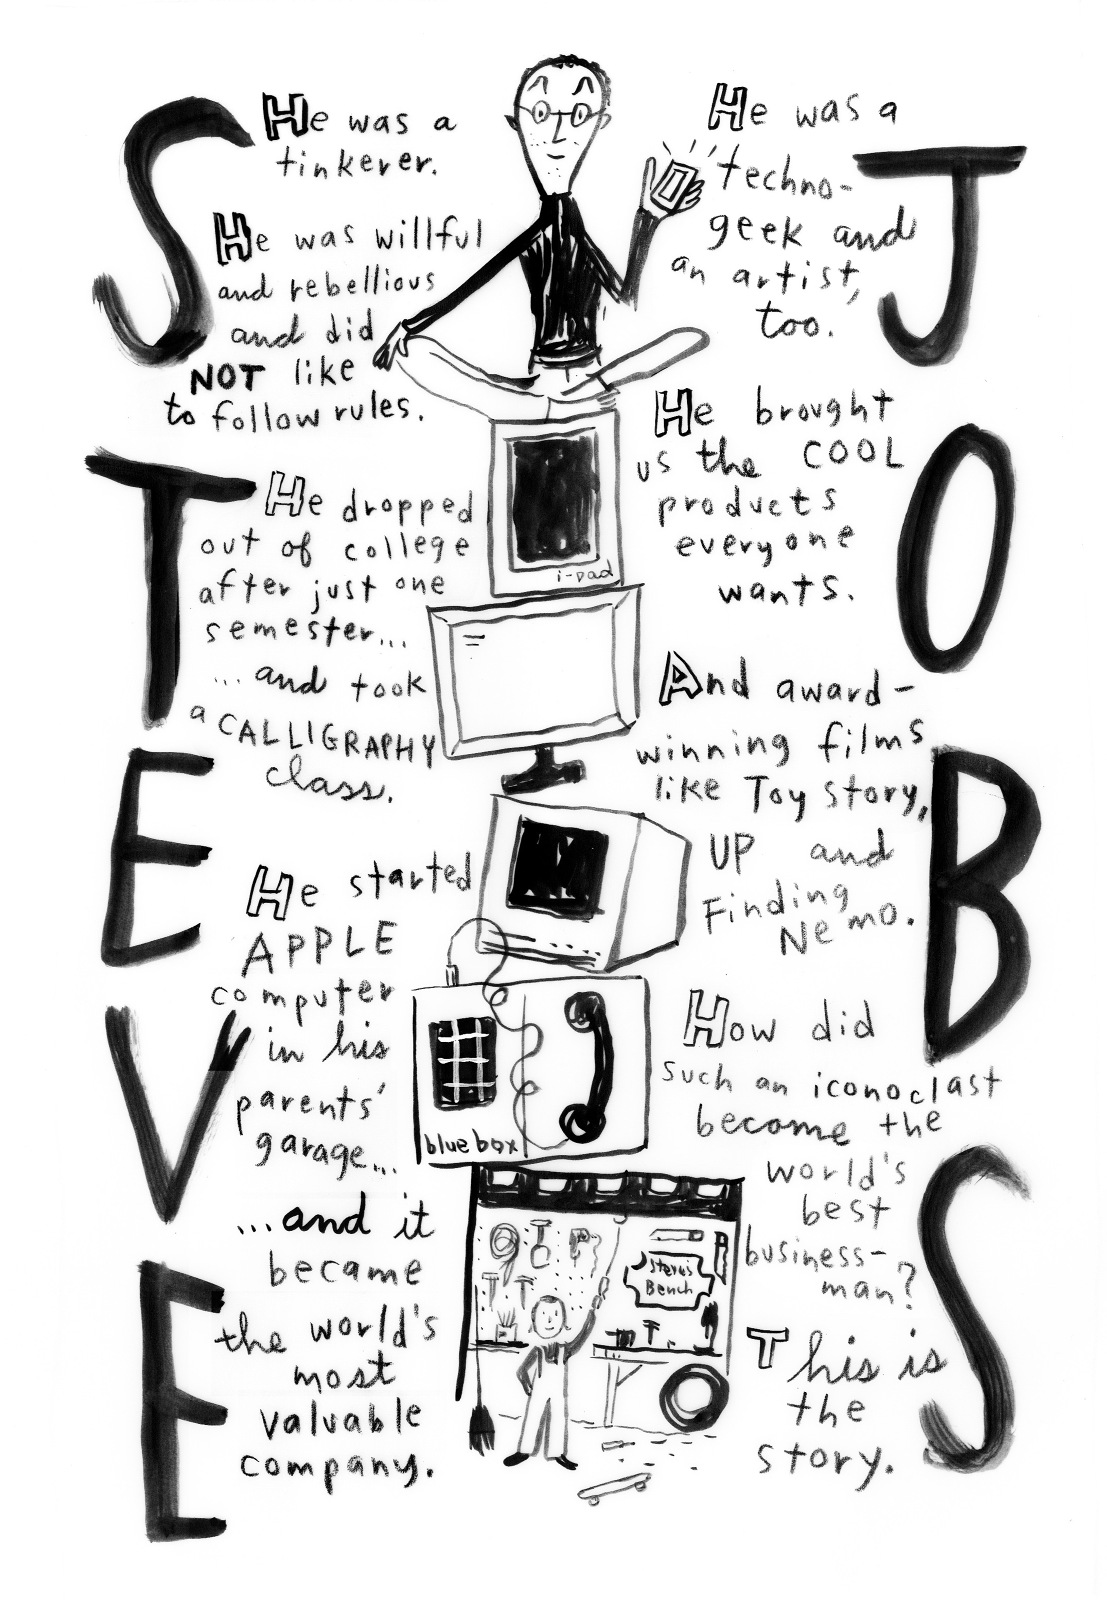 STEVE
He was a
tinkerer.
He was willful
and rebellious
and did
NOT like
to follow rules.
He dropped
out of college
after just one
semester...
...and took
a CALLIGRAPHY
class.
He started
APPLE
computer
in his
parents'
garage...
...and it
became
the world's
most
valuable
company.
i-pad
blue box
Steve's
Bench
He was a
techno-
geek and
an artist,
too.
He brought
us the COOL
products
everyone
wants.
And award-
winning films
like Toy Story,
UP and
Finding
Nemo.
How did
such an iconoclast
become the
world's
best
business-
man?
This is
the
story.
JOBS